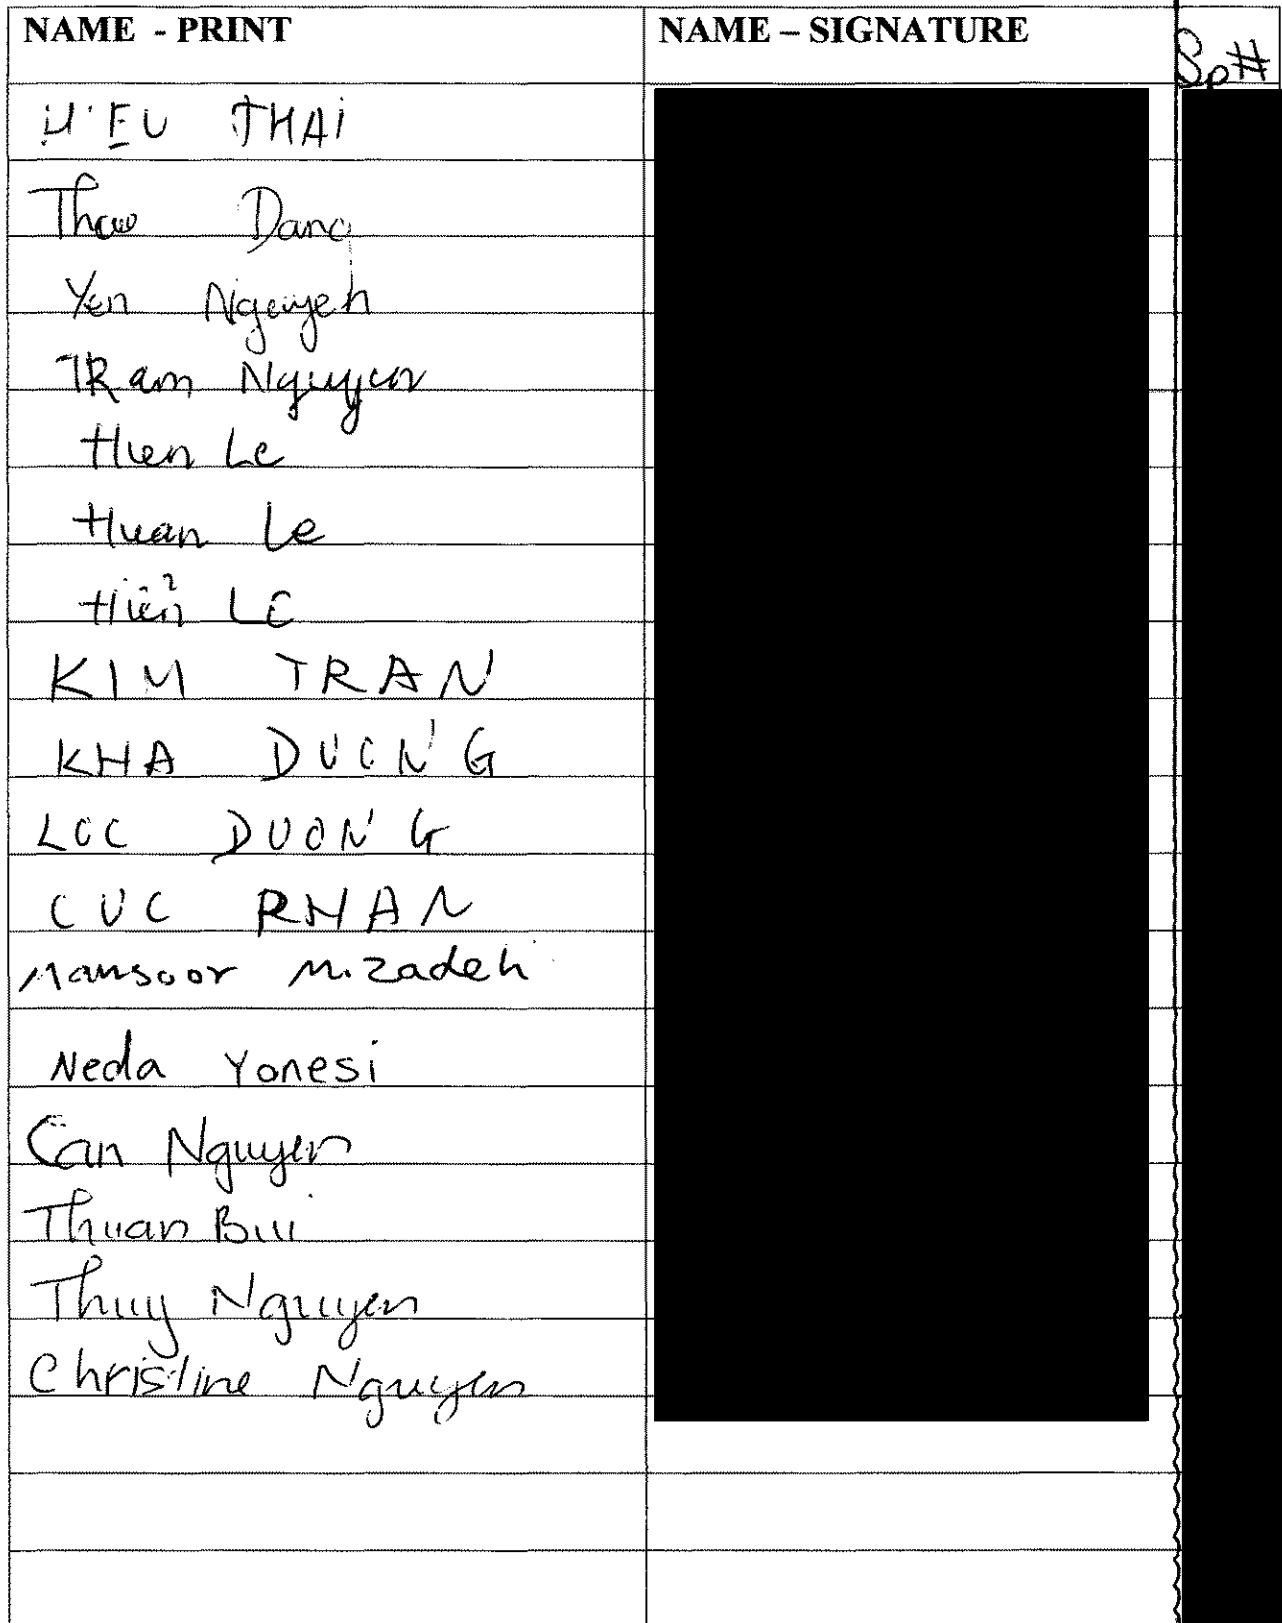 NAME - PRINT NAME – SIGNATURE Sp#
HIEU THAI
Thao Dang
Yen Nguyen
TRam Nguyen
Hien Le
Huan Le
Hiển LE
KIM TRAN
KHA DUONG
LOC DUONG
CUC PHAN
Mansoor M.zadeh
Neda Yonesi
Can Nguyen
Thuan Bui
Thuy Nguyen
Christine Nguyen